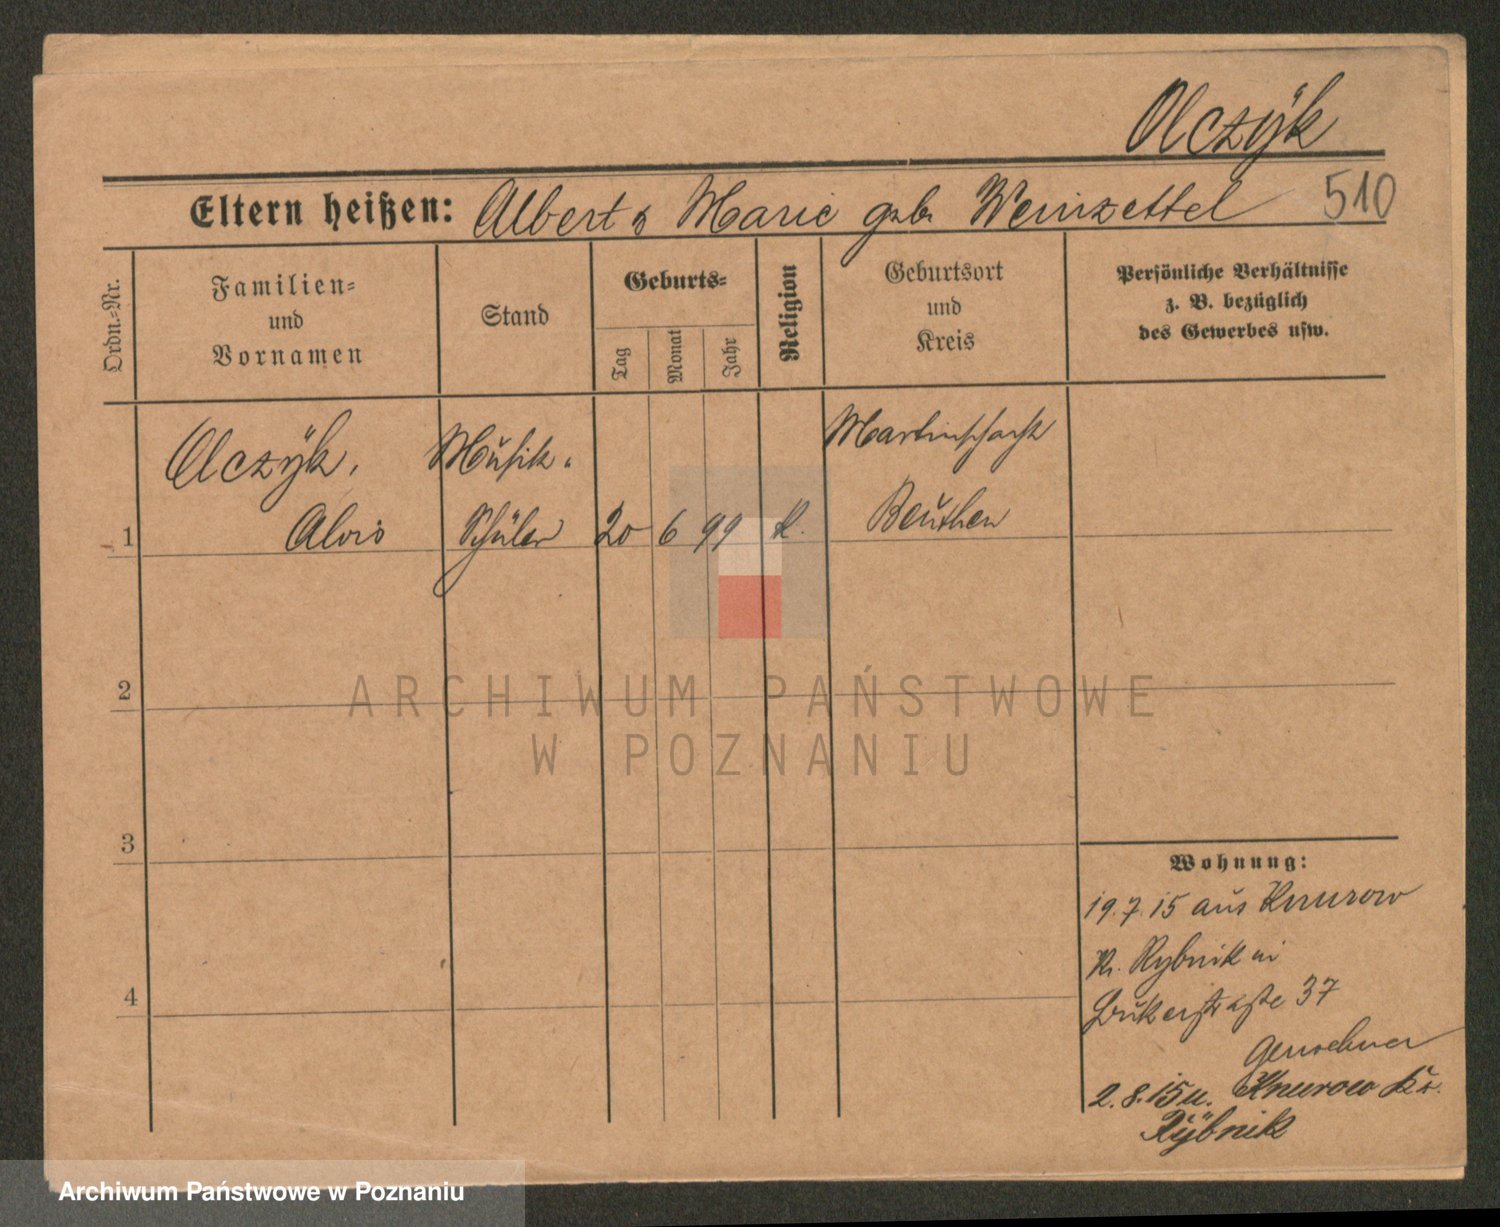 Olczÿk
Eltern heißen: Albert & Marie geb. Weinzettel 510
Ordn.-Nr.
Familien-
und
Vornamen
Stand
Geburts-
Tag
Monat
Jahr
Religion
Geburtsort
und
Kreis
Persönliche Verhältnisse
z. B. bezüglich
des Gewerbes usw.
Olczÿk, Musik- Martinschacht
1 Alois Schüler 20 6 99 K. Beuthen
2
3
4
Wohnung:
19.7.15 aus Knurow
Kr. Rybnik
37
2.8.15 n. Knurow Kr.
Rÿbnik
ARCHIWUM PAŃSTWOWE
W POZNANIU
Archiwum Państwowe w Poznaniu